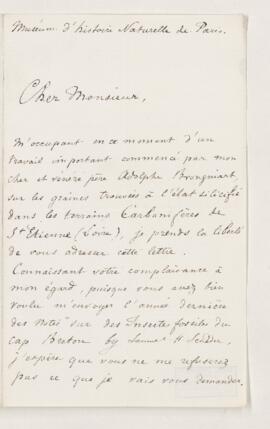 Muséum d'histoire Naturelle de Paris.
Cher Monsieur,
M'occupant en ce moment d'un
travail important commencé par mon
cher et vénéré père Adolphe Brongniart
sur les graines trouvées à l'état silicifié
dans les terrains Carbonifères de
St Etienne (Loire), je prends la liberté
de vous adresser cette lettre.
Connaissant votre complaisance à
mon égard, puisque vous avez bien
voulu m'envoyer l'année dernière
des Notes sur des Insectes fossiles du
cap Breton by H
j'espère que vous ne me refuserez
pas ce que je vais vous demander.